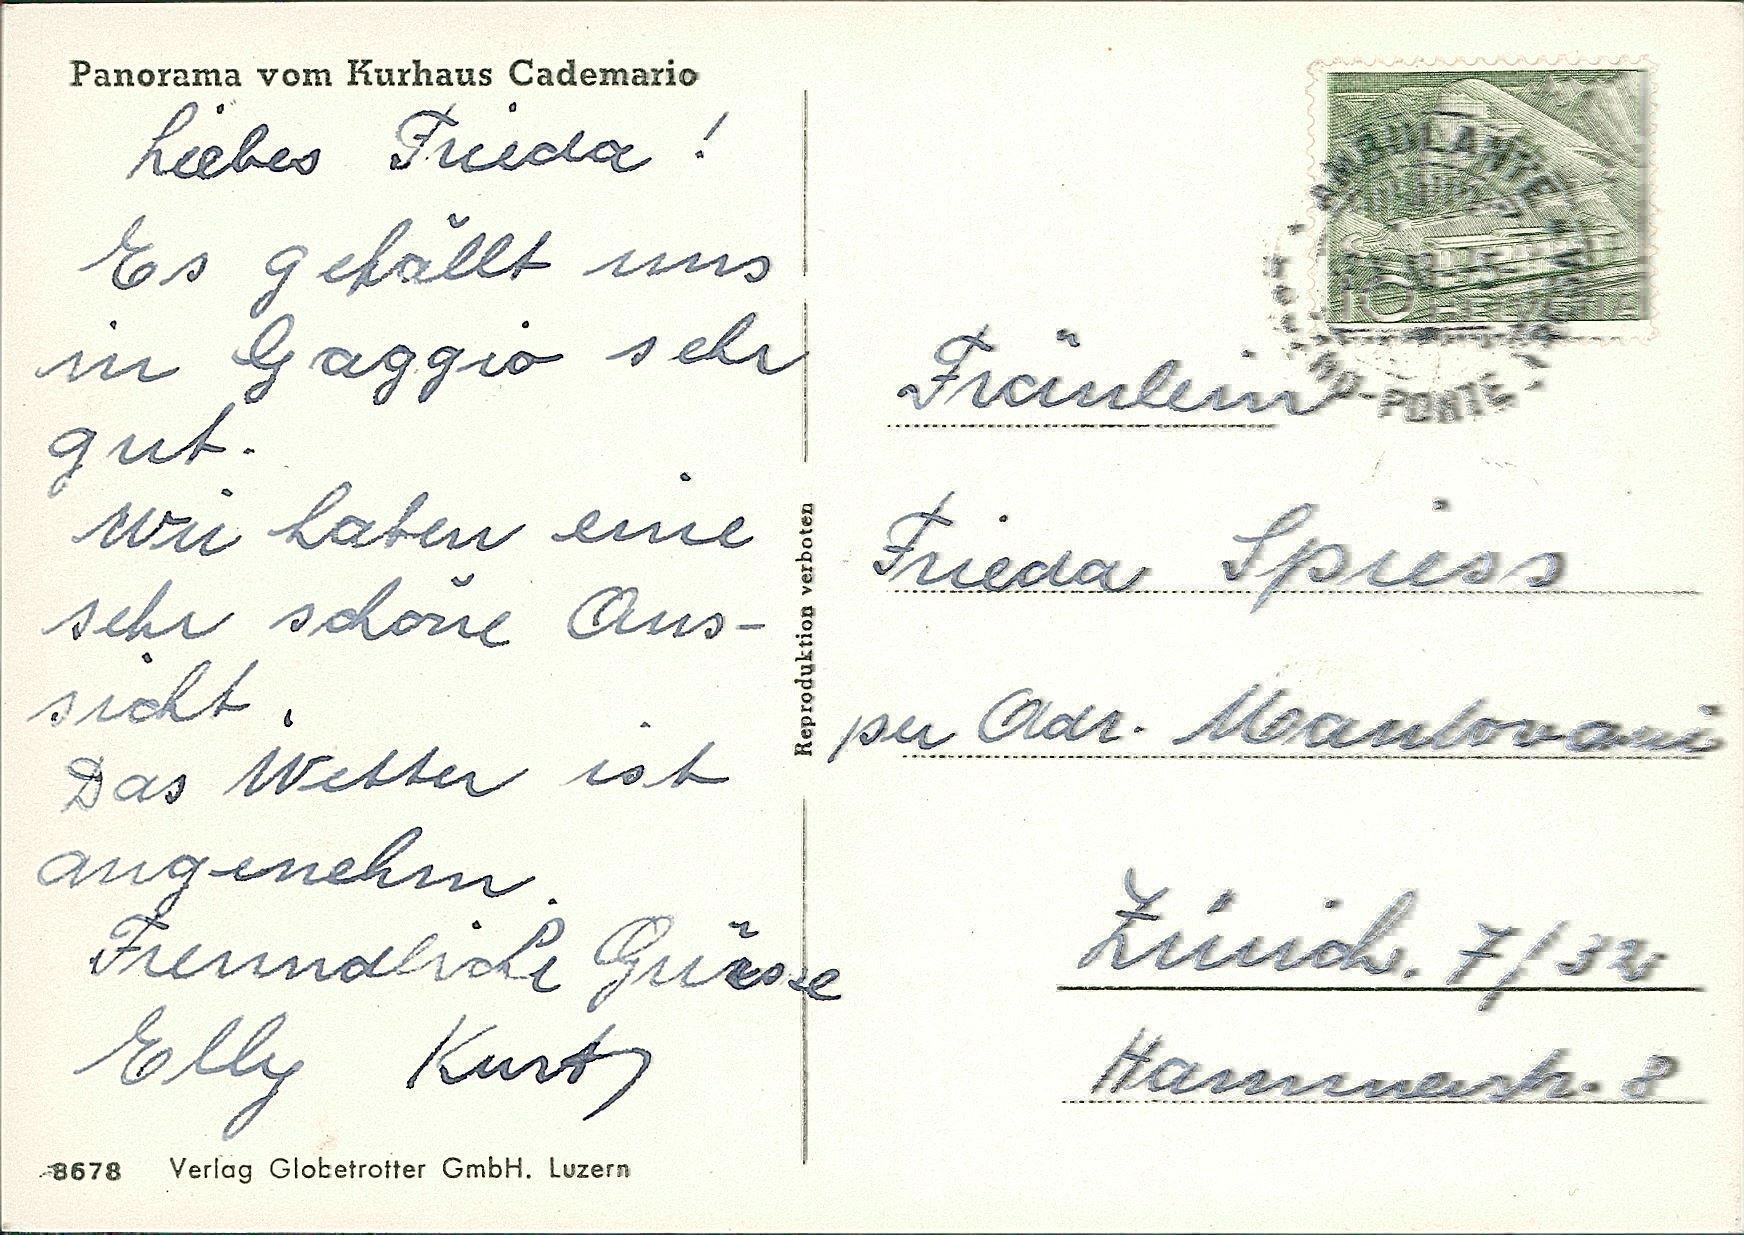 Panorama vom Kurhaus Cademario
Liebes Frieda!
Es gefällt uns
in Gaggio sehr
gut.
Wir haben eine
sehr schöne Aus-
sicht.
Das Wetter ist
angenehm.
Freundliche Grüsse
Elly Kurt
8678 Verlag Globetrotter GmbH. Luzern
Reproduktion verboten
AMBULANTE
10 HELVETIA
PONTE
Fräulein
Frieda Spiess
per Adr. Mantovani
Zürich. 7/32
Hammerstr. 8